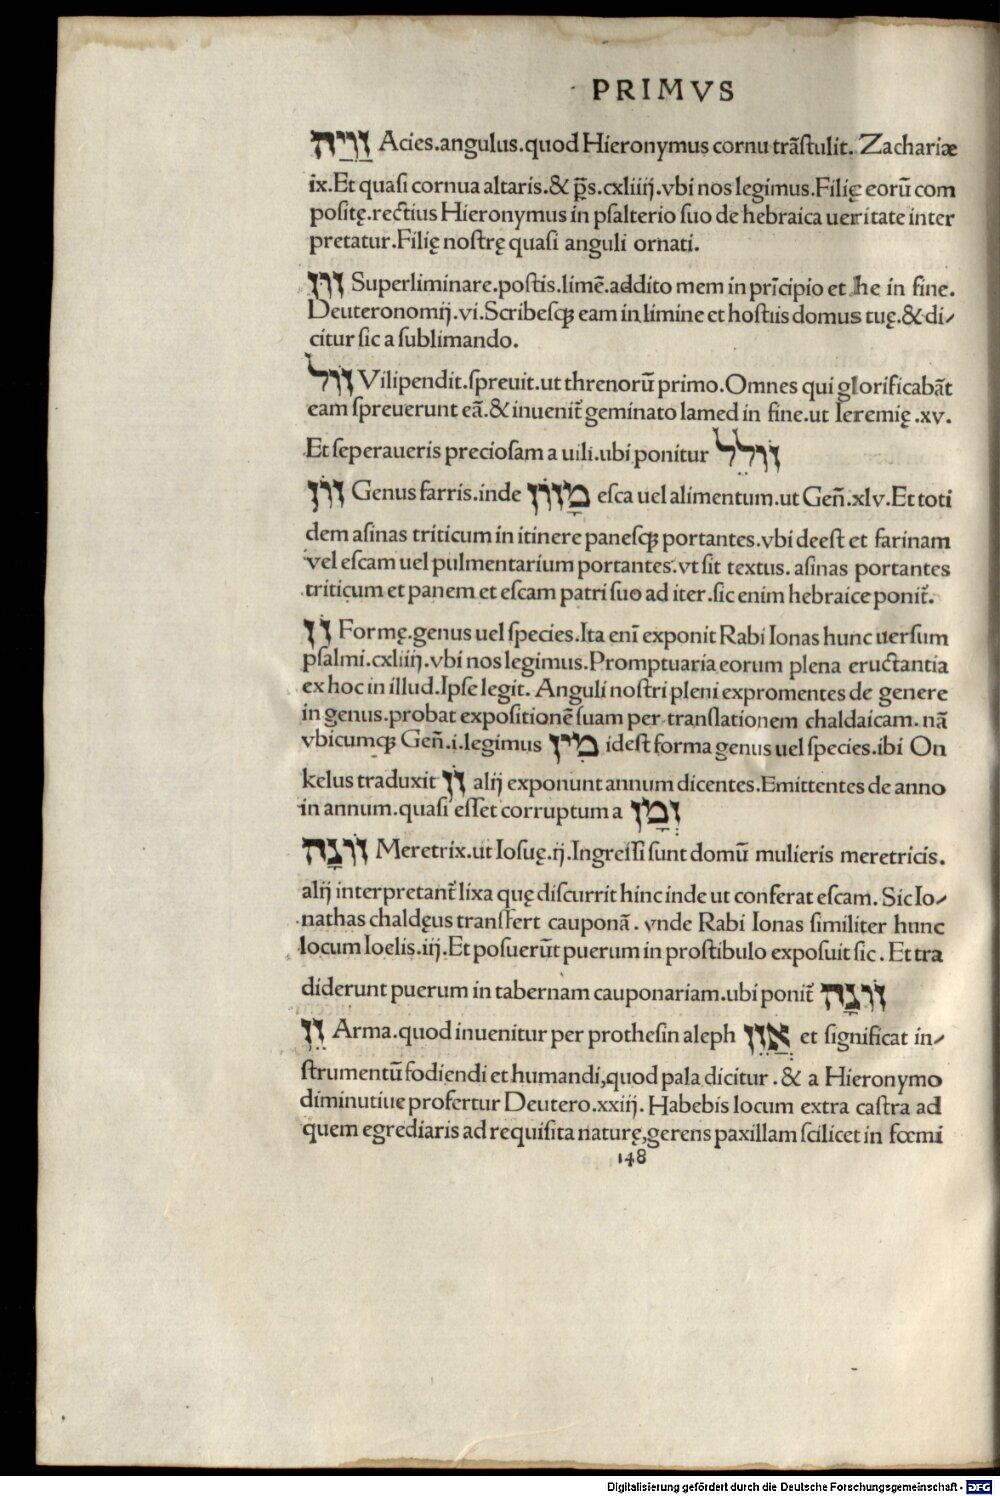 PRIMVS
זָוִיָה Acies.angulus.quod Hieronymus cornu trãſtulit. Zachariæ
ix.Et quaſi cornua altaris.& p̃s.cxliiij.vbi nos legimus.Filię eorũ com
poſitę.rectius Hieronymus in pſalterio ſuo de hebraica ueritate inter
pretatur.Filię noſtrę quaſi anguli ornati.
זוּז Superliminare.poſtis.limẽ.addito mem in prĩcipio et he in fine.
Deuteronomij.vi.Scribeſqꝫ eam in limine et hoſtiis domus tuę.& di⸗
citur ſic a ſublimando.
זוֹל Vilipendit.ſpreuit.ut threnorũ primo.Omnes qui glorificabãt
eam ſpreuerunt eã.& inuenit̃ geminato lamed in fine.ut Ieremię .xv.
Et ſeperaueris precioſam a uili.ubi ponitur זוֹלֵל
זוֹן Genus farris.inde מָזוֹן eſca uel alimentum.ut Geñ.xlv.Et toti
dem aſinas triticum in itinere paneſqꝫ portantes.vbi deeſt et farinam
vel eſcam uel pulmentarium portantes.vt ſit textus. aſinas portantes
triticum et panem et eſcam patri ſuo ad iter.ſic enim hebraice ponit̃.
זַן Formę.genus uel ſpecies.Ita enĩ exponit Rabi Ionas hunc uerſum
pſalmi.cxliiij.vbi nos legimus.Promptuaria eorum plena eructantia
ex hoc in illud.Ipſe legit. Anguli noſtri pleni expromentes de genere
in genus.probat expoſitionẽ ſuam per tranſlationem chaldaicam. nã
vbicumqꝫ Geñ.i.legimus מִין ideſt forma genus uel ſpecies.ibi On
kelus traduxit זַן alij exponunt annum dicentes.Emittentes de anno
in annum.quaſi eſſet corruptum a זְמָן
זוֹנָה Meretrix.ut Ioſuę.ij.Ingreſſi ſunt domũ mulieris meretricis.
alij interpretant̃ lixa quę diſcurrit hinc inde ut conferat eſcam. Sic Io⸗
nathas chaldęus tranſfert cauponã. vnde Rabi Ionas ſimiliter hunc
locum Ioelis.iij.Et poſuerũt puerum in proſtibulo expoſuit ſic. Et tra
diderunt puerum in tabernam cauponariam.ubi ponit̃ זוֹנָה
זֵן Arma.quod inuenitur per protheſin aleph אֲזֵן et ſignificat in⸗
ſtrumentũ fodiendi et humandi,quod pala dicitur . & a Hieronymo
diminutiue profertur Deutero.xxiij. Habebis locum extra caſtra ad
quem egrediaris ad requiſita naturę,gerens paxillam ſcilicet in fœmi
148
Digitalisierung gefördert durch die Deutsche Forschungsgemeinschaft - DFG